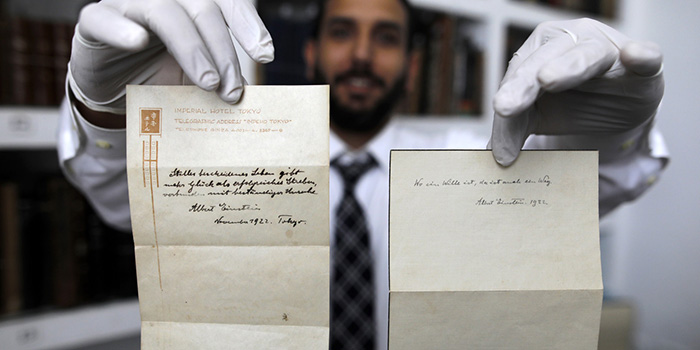 IMPERIAL HOTEL TOKYO
TELEGRAPHIC ADDRESS TOKYO
TELEPHONE
Stilles bescheidenes Leben gibt
mehr Glück als erfolgreiches Streben,
verbunden mit beständiger Unruhe.
Albert Einstein
November 1922. Tokyo.
Wo ein Wille ist, da ist auch ein Weg.
Albert Einstein. 1922.